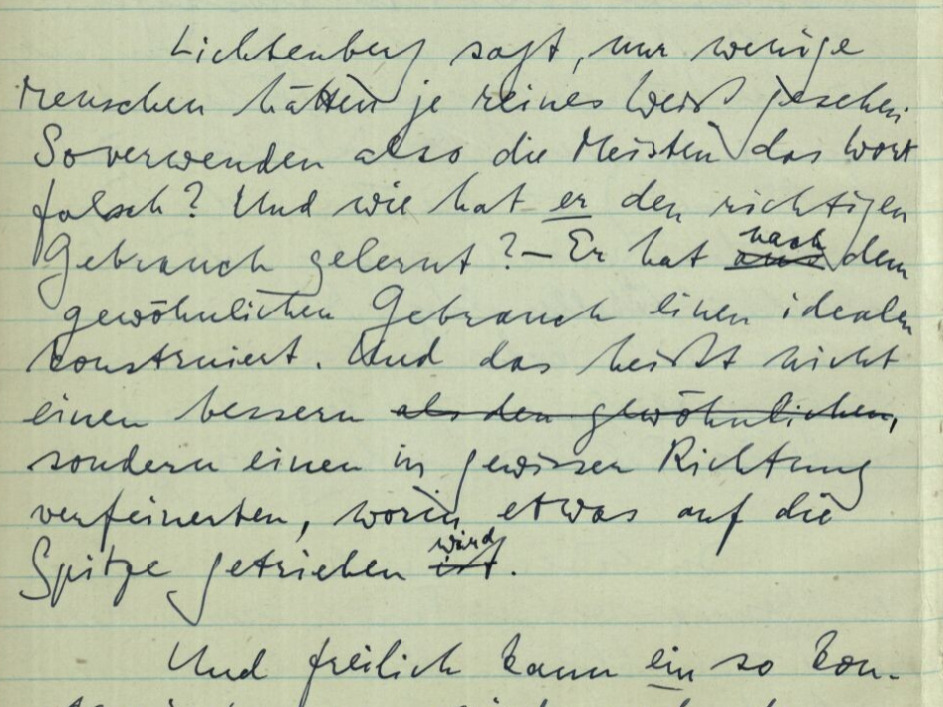 Lichtenberg sagt, nur wenige
Menschen hätten je reines Weiß gesehen.
So verwenden also die Meisten das Wort
falsch? Und wie hat er den richtigen
Gebrauch gelernt? – Er hat nach dem
gewöhnlichen Gebrauch einen idealen
konstruiert. Und das heißt nicht
einen bessern als den gewöhnlichen,
sondern einen in gewisser Richtung
verfeinerten, worin etwas auf die
Spitze getrieben ist wird.
Und freilich kann ein so kon-